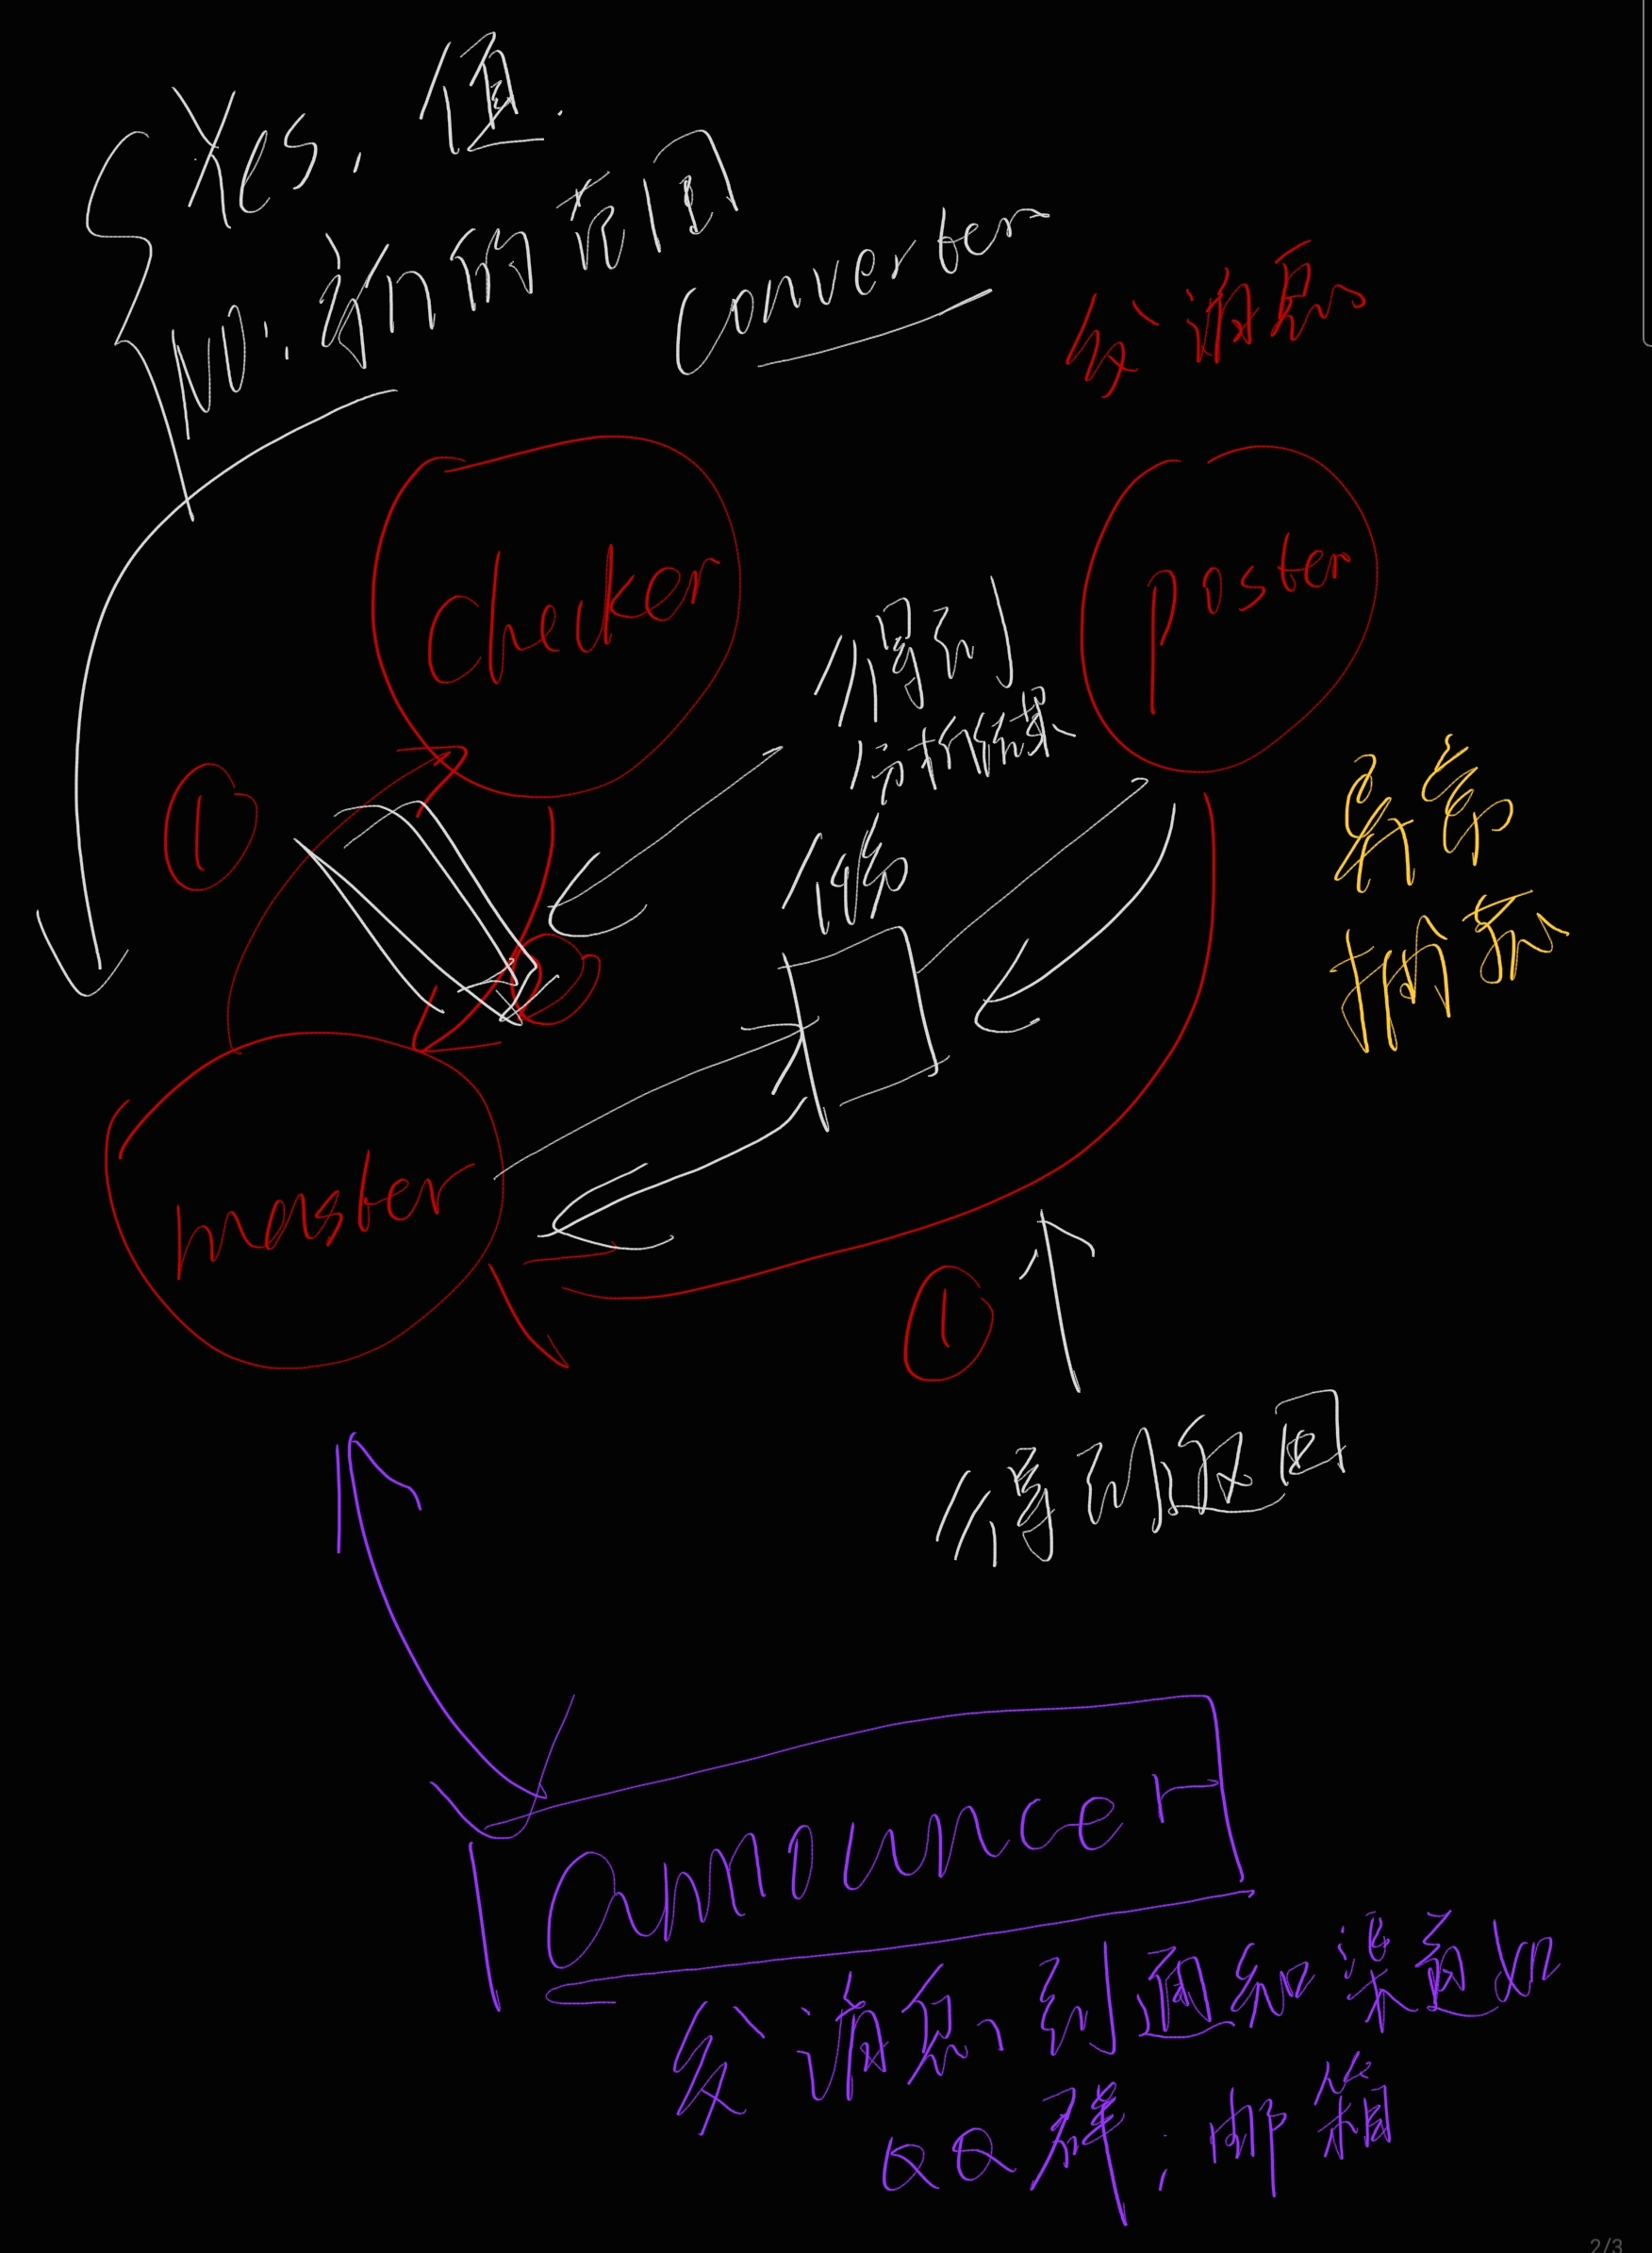 Yes, 值.
NO: 新的范围
Converter
发消息
Checker
poster
得到
分析结果
任务
异常
捕获
①
master
①
得到返回
announcer
发消息到通知渠道如
QQ群;邮箱
2/3